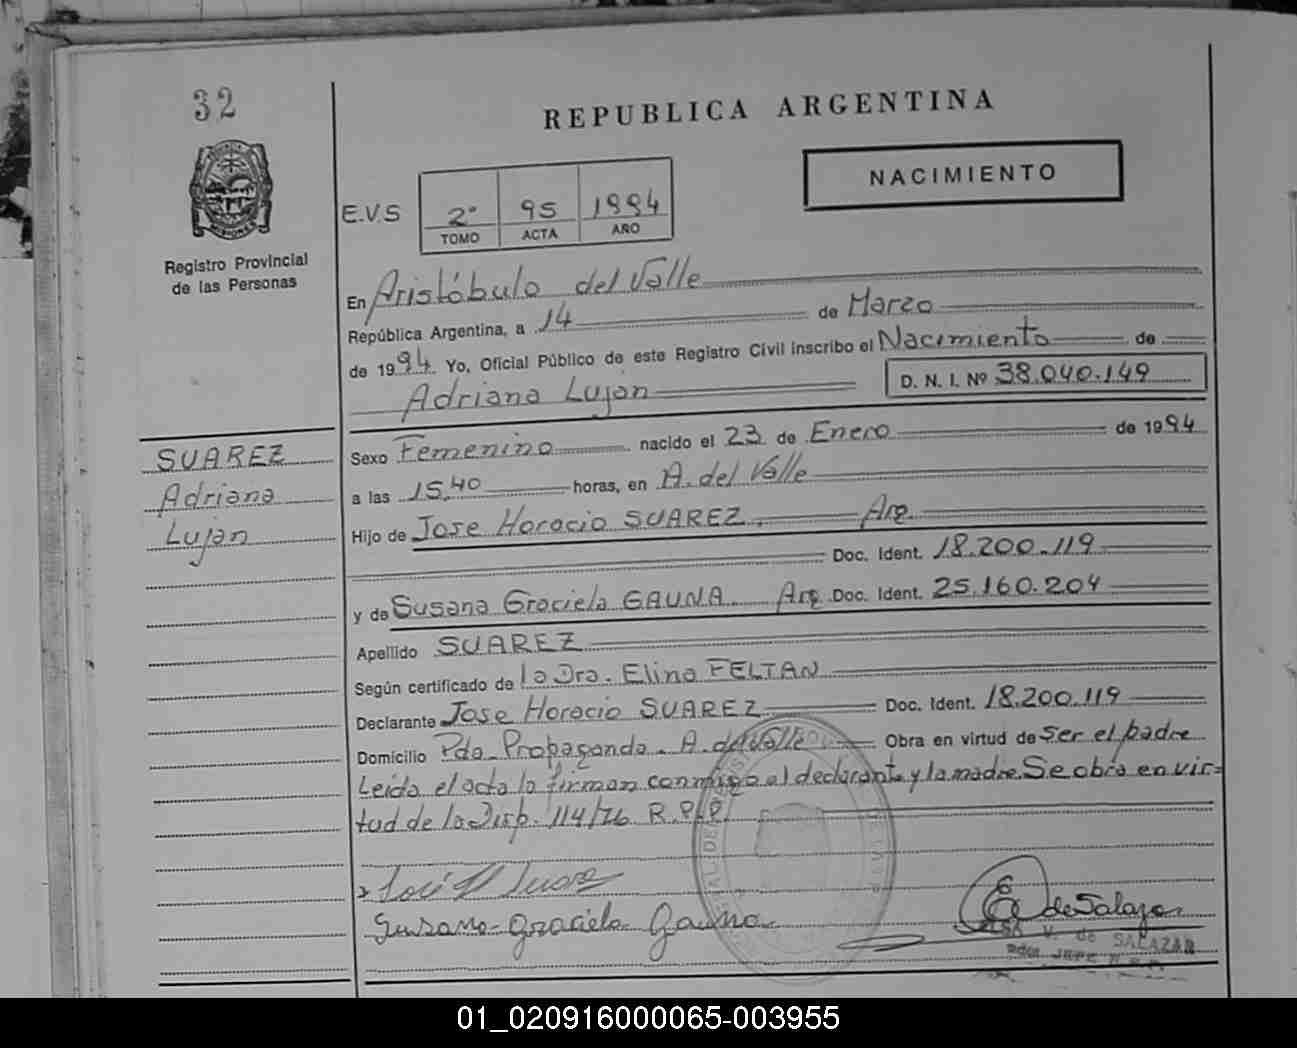 32
REPUBLICA ARGENTINA
NACIMIENTO
E.V.S
2º 95 1994
TOMO ACTA AÑO
MISIONES
Registro Provincial
de las Personas
En Aristóbulo del Valle
República Argentina, a 14 de Marzo
de 1994. Yo, Oficial Público de este Registro Civil inscribo el Nacimiento de
Adriana Lujan D. N. I. Nº 38.040.149
SUAREZ
Adriana
Lujan
Sexo Femenino nacido el 23 de Enero de 1994
a las 15,40 horas, en A. del Valle
Hijo de Jose Horacio SUAREZ. Arg.
Doc. Ident. 18.200.119
y de Susana Graciela GAUNA. Arg. Doc. Ident. 25.160.204
Apellido SUAREZ
Según certificado de la Dra. Elina FELTAN
Declarante Jose Horacio SUAREZ Doc. Ident. 18.200.119
Domicilio Pda. Propaganda. A. del Valle Obra en virtud de ser el padre
Leída el acta la firman conmigo el declarante y la madre. Se obra en vir-
tud de la Disp. 114/76 R.P.P.
José H Suarez
Susana Graciela Gauna
E de Salazar
V. de SALAZAR
JEFE
01_020916000065-003955